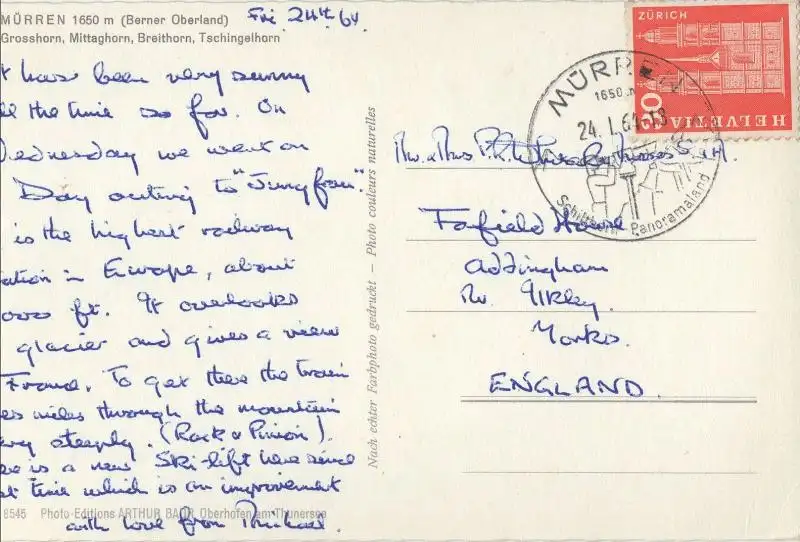 MÜRREN 1650 m (Berner Oberland)
Grosshorn, Mittaghorn, Breithorn, Tschingelhorn
Fri 24th 64.
t has been very sunny
ll the time so far. On
Wednesday we went on
Day outing to "Jungfrau".
is the highest railway
tation in Europe, about
000 ft. It overlooks
glacier and gives a view
France. To get there the train
es miles through the mountain
ery steeply. (Rack & Pinion).
re is a new Ski-lift here since
st time which is an improvement
with love from Michael.
8545 Photo-Editions ARTHUR BAUR, Oberhofen am Thunersee
Nach echter Farbphoto gedruckt — Photo couleurs naturelles
ZÜRICH
HELVETIA
MÜRREN
1650 m
24. I. 64-18
Schilthorn Panoramaland
Mr. & Mrs
House
Addingham
Nr. Ilkley.
Yorks.
ENGLAND.